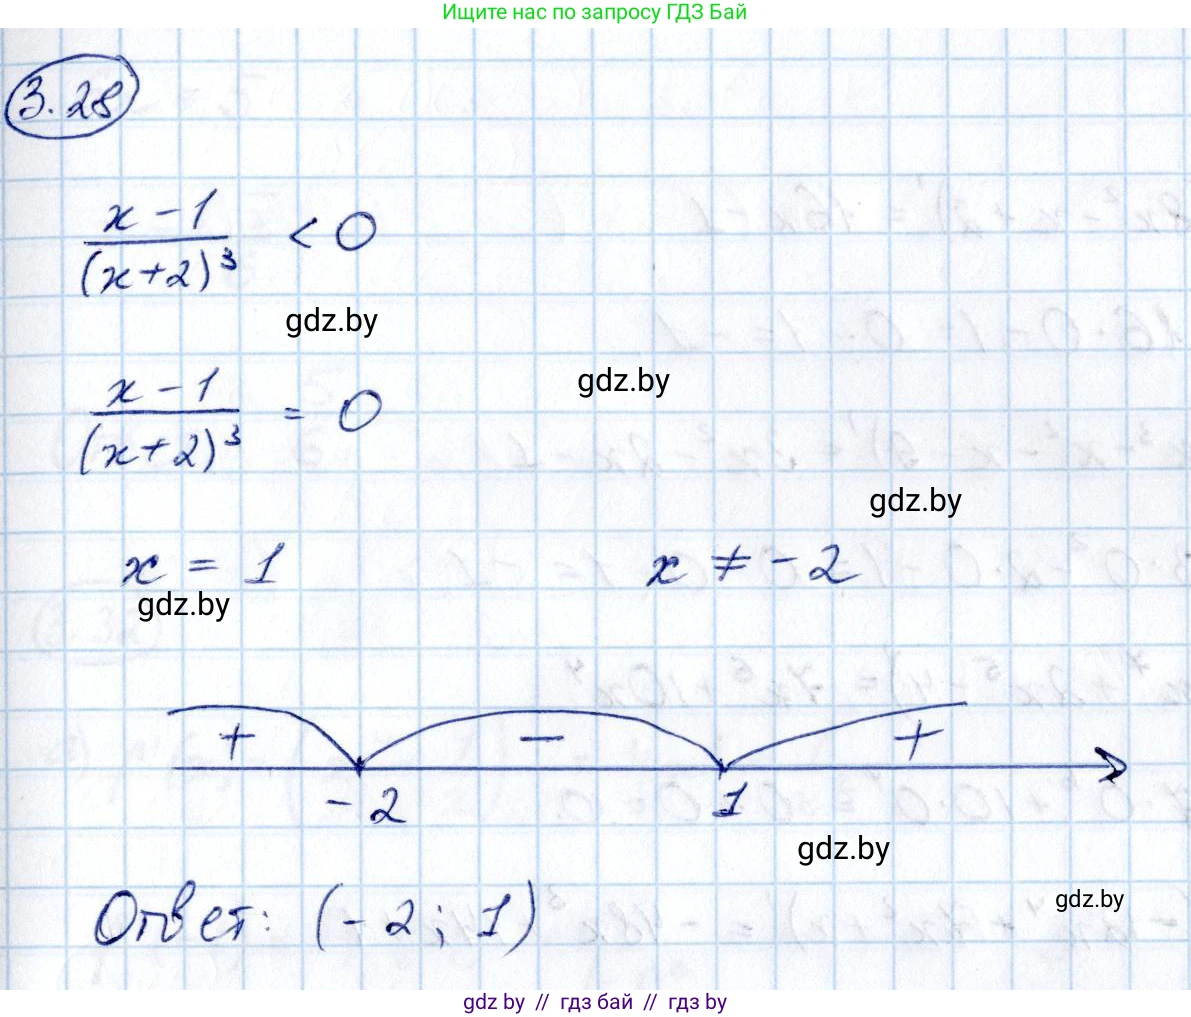 Ищите нас по запросу ГДЗ Бай
3.28
(x - 1)/(x+2)³ < 0
gdz.by
gdz.by
(x - 1)/(x+2)³ = 0
gdz.by
x = 1 x ≠ -2
gdz.by
+ − +
-2 1
gdz.by
gdz.by
Ответ: (-2; 1)
gdz by // гдз бай // гдз by